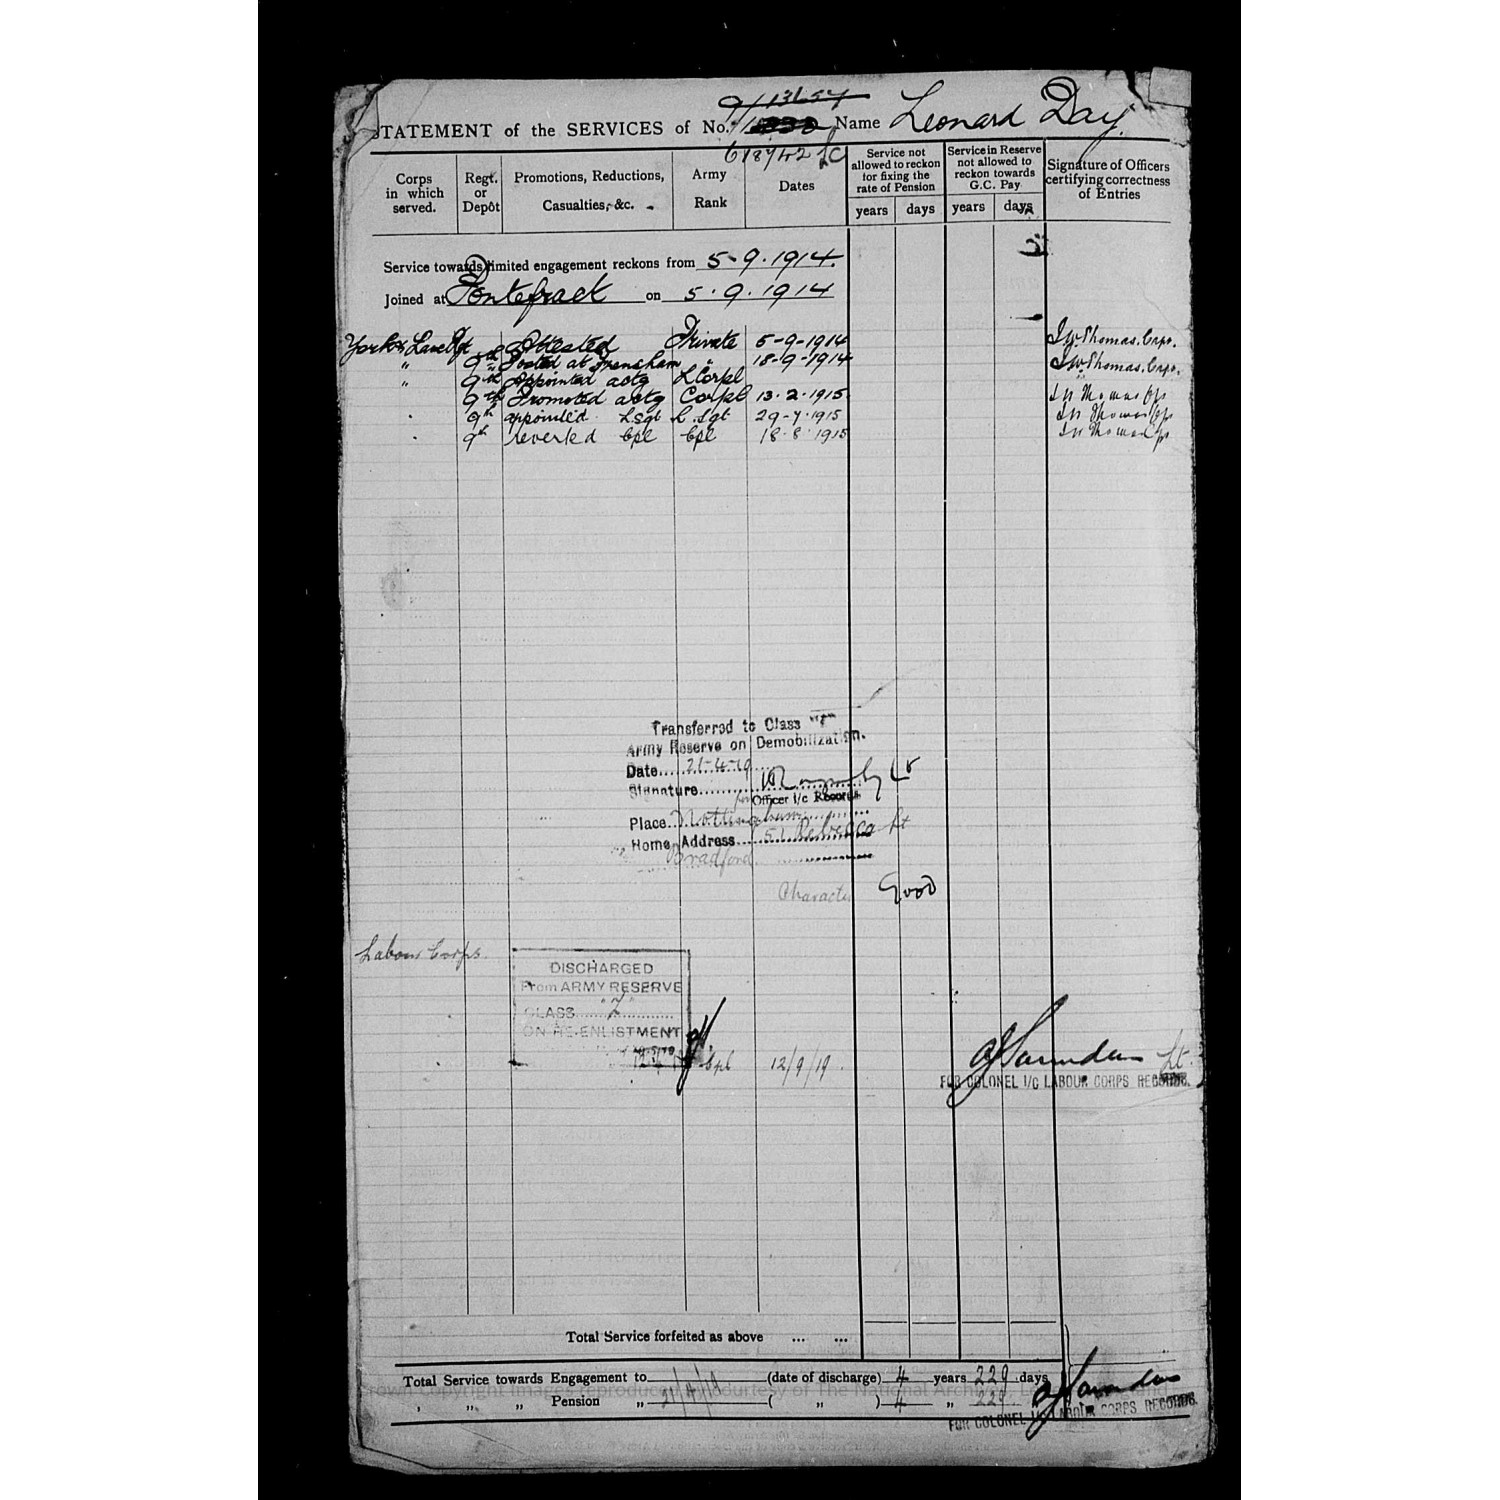 9/13654
STATEMENT of the SERVICES of No. Name Leonard Day
618742 LC
Corps in which served. Regt. or Depôt Promotions, Reductions, Casualties, &c. Army Rank Dates Service not allowed to reckon for fixing the rate of Pension Service in Reserve not allowed to reckon towards G.C. Pay Signature of Officers certifying correctness of Entries
years days years days
Service towards limited engagement reckons from 5-9-1914.
Joined at Pontefract on 5.9.1914
York & Lanc Rgt Attested Private 5-9-1914 J W Thomas. Capt.
" 9th Posted at Frensham " 18-9-1914 J W Thomas. Capt.
" 9th Appointed actg L Corpl
9th Promoted actg Corpl 13.2.1915 J W Thomas Capt
9th appointed L. Sgt L. Sgt 29-7-1915 J W Thomas Capt
9th reverted Cpl Cpl 18.8.1915 J W Thomas Capt
Transferred to Class "Z"
Army Reserve on Demobilization.
Date 21-4-19
Signature Lt
for Officer i/c Records
Place Nottingham
Home Address 51 Rebecca St
Bradford
Character Good
Labour Corps.
DISCHARGED
From ARMY RESERVE
CLASS "Z"
ON RE-ENLISTMENT
Cpl 12/9/19. Saunders Lt.
FOR COLONEL I/C LABOUR CORPS RECORDS.
Total Service forfeited as above ... ...
Total Service towards Engagement to (date of discharge) 4 years 229 days
Crown Copyright Images reproduced courtesy of The National Archives, London, England
" " " Pension " 21/4/19 ( " ) 4 " 229 Saunders
FOR COLONEL I/C LABOUR CORPS RECORDS.